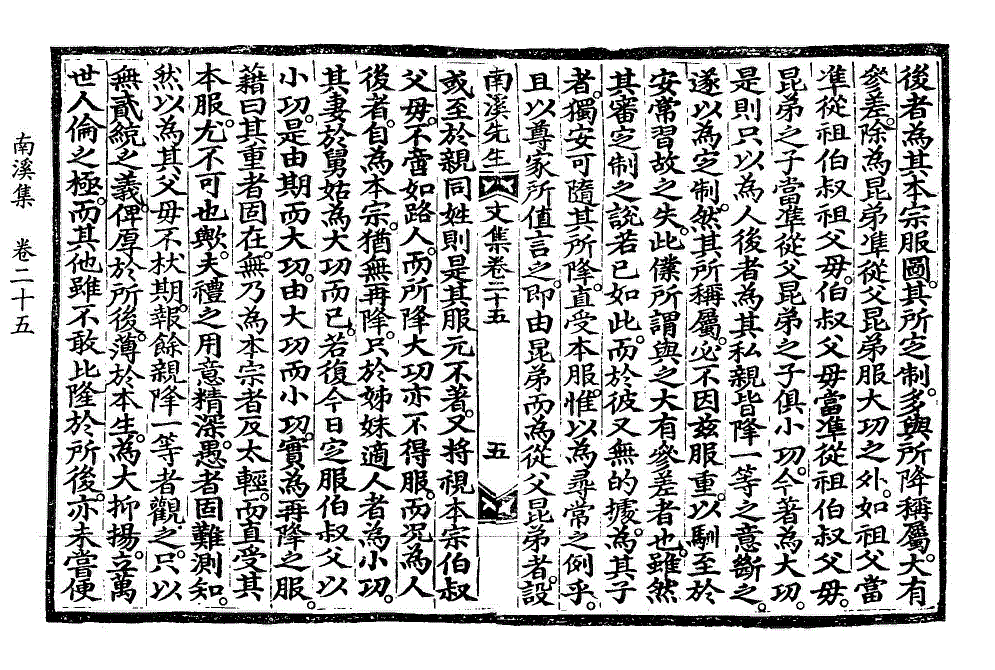 後者為其本宗服圖其所定制多與所降稱屬大有
參差除為昆弟准從父昆弟服大功之外如祖父當
准從祖伯叔祖父毋伯叔父毋當准從祖伯叔父毋
昆弟之子當准從父昆弟之子俱小功今著為大功
是則只以為人後者為其私親皆降一等之意斷之
遂以為定制然其所稱屬必不因玆服重以馴至於
安常習故之失此僕所謂與之大有參差者也雖然
其審定制之說若已如此而於彼又無的據為其子
者獨安可隨其所降直受本服惟以為尋常之例乎
且以尊家所值言之即由昆弟而為從父昆弟者設
南溪先生文集卷二十五
五
或至於親同姓則是其服元不著又將視本宗伯叔
父毋不啻如路人而所降大功亦不得服而況為人
後者自為本宗猶無再降只於姊妹適人者為小功
其妻於舅姑為大功而已若復今日定服伯叔父以
小功是由期而大功由大功而小功實為再降之服
藉曰其重者固在無乃為本宗者反太輕而直受其
本服尤不可也歟夫禮之用意精深愚者固難測知
然以為其父毋不杖期報餘親降一等者觀之只以
無貳綂之義俾厚於所後薄於本生為大抑揚立萬
世人倫之極而其他雖不敢比隆於所後亦未嘗便
南溪集 卷二十五